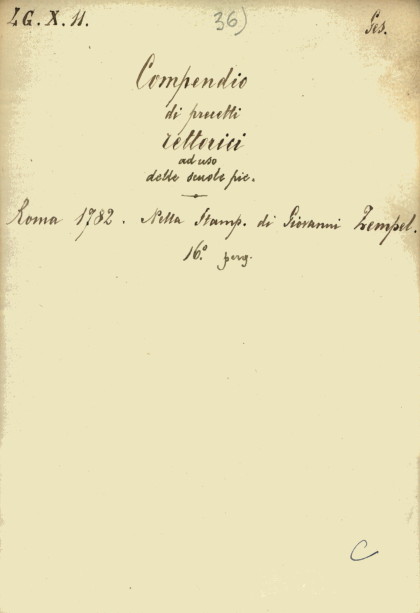 LG. X. 11. 36) Ges.
Compendio
di precetti
rettorici
ad uso
delle scuole pie.
Roma 1782. Nella Stamp. di Giovanni Zempel.
16.° perg.
C